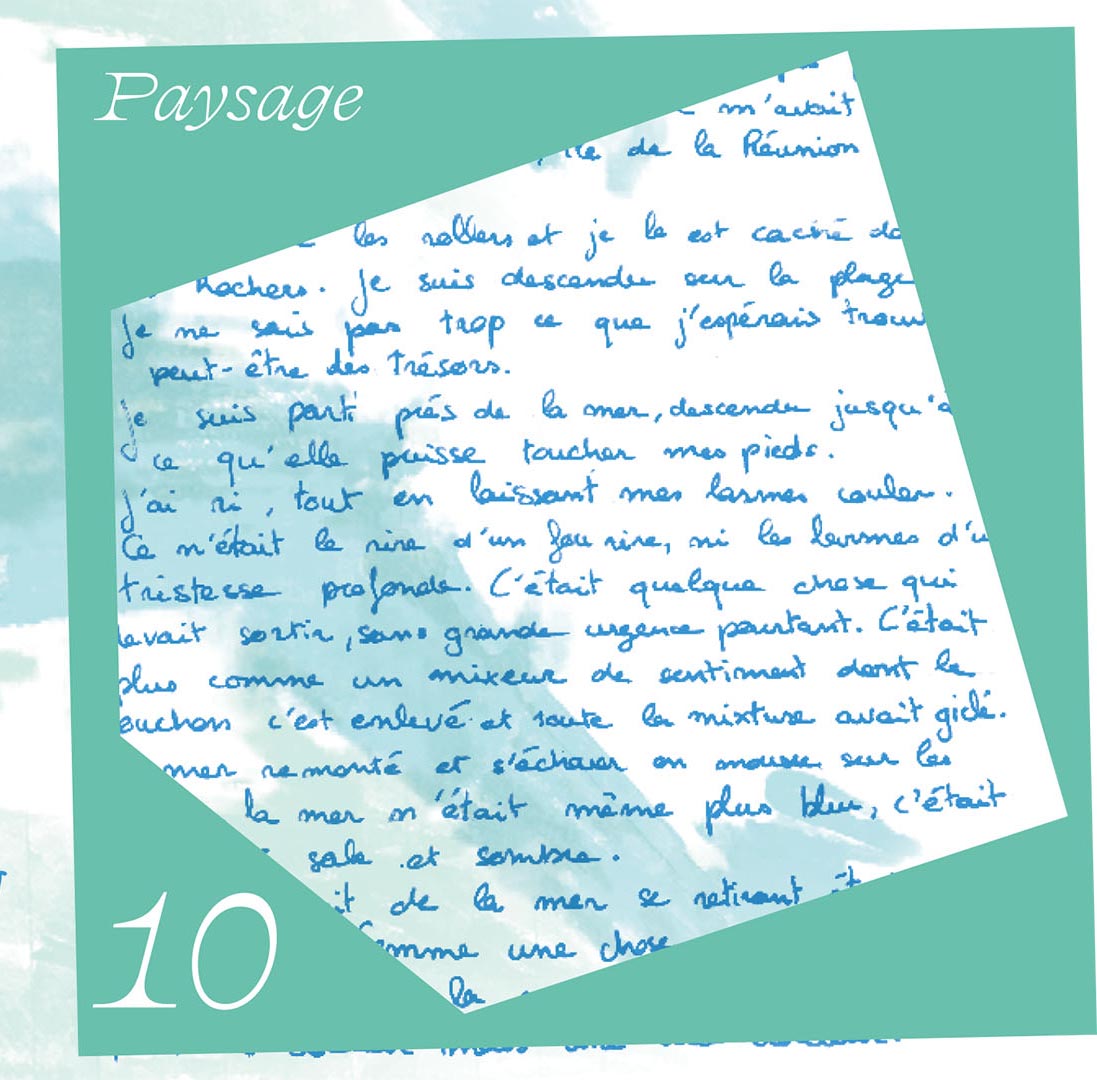 Paysage
m'avait
de la Réunion
les rollers et je le est caché
Rochers. Je suis descendu sur la plage
Je ne sais pas trop ce que j'espérais
peut-être des trésors.
Je suis parti près de la mer, descendu jusqu'à
ce qu'elle puisse toucher mes pieds.
J'ai ri, tout en laissant mes larmes couler.
Ce n'était le rire d'un fou rire, ni les larmes
tristesse profonde. C'était quelque chose qui
devait sortir, sans grande urgence pourtant. C'était
plus comme un mixeur de sentiment dont le
bouchon c'est enlevé et toute la mixture avait giclé.
mer remonté et en mousse sur les
la mer n'était même plus bleu, c'était
sale et sombre.
de la mer se retirant
comme une chose
la
10